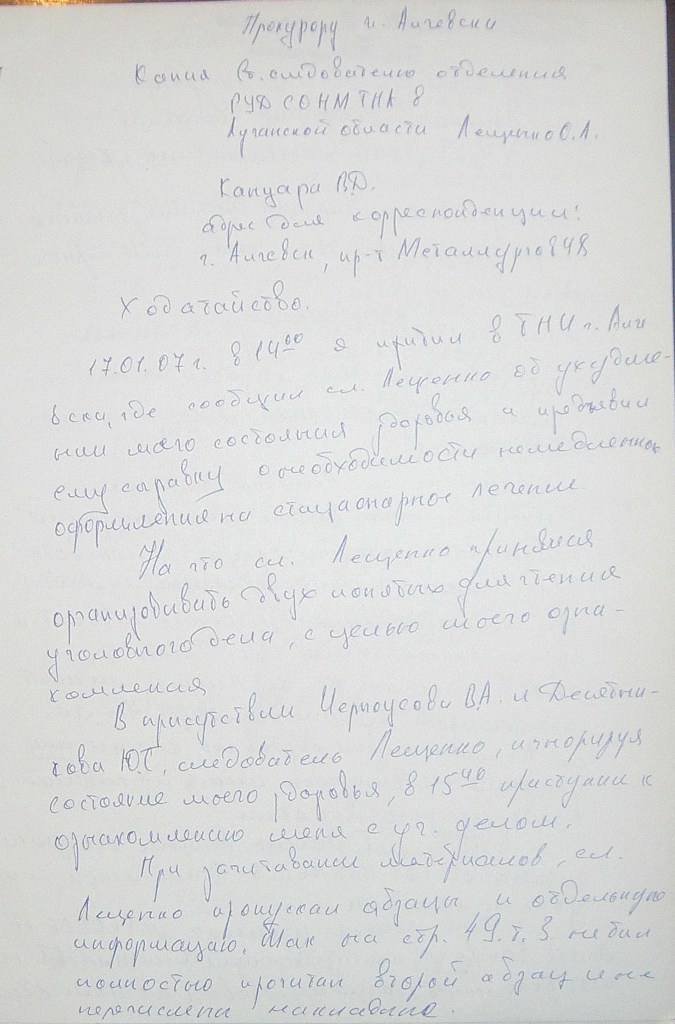 Прокурору г. Алчевски
Копия Ст. следователю отделения
РУД СО НМ ГНА в
Луганской области Лещенко О.А.
Капцара В.Д.
адрес для корреспонденции:
г. Алчевск, пр-т Металлургов
Ходатайство.
17.01.07 г. в 14⁰⁰ я прибыл в ГНИ г. Алче
вска, где сообщил сл. Лещенко об ухудше-
нии моего состояния здоровья и предъявил
ему справку о необходимости немедленного
оформления на стационарное лечение
На что сл. Лещенко принялся
организовывать двух понятых для чтения
уголовного дела, с целью моего озна-
комления
В присутствии Черноусова В.А. и Десятни-
кова Ю.Г., следователь Лещенко, игнорируя
состояние моего здоровья, в 15⁴⁰ приступил к
ознакомлению меня с уг. делом.
При зачитывании материалов, сл.
Лещенко пропускал абзацы и отдельную
информацию. Так на стр. 49 т. 3 не был
полностью прочитан второй абзац и не
перечислены накладные.